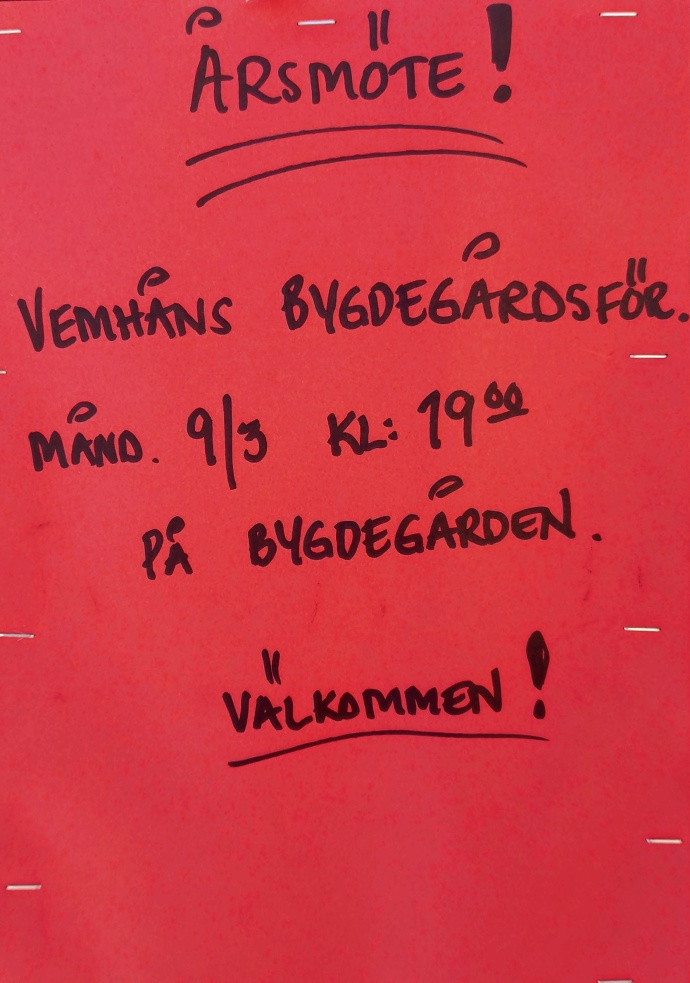 ÅRSMÖTE!
VEMHÅNS BYGDEGÅRDSFÖR.
MÅND. 9/3 KL: 19⁰⁰
PÅ BYGDEGÅRDEN.
VÄLKOMMEN!